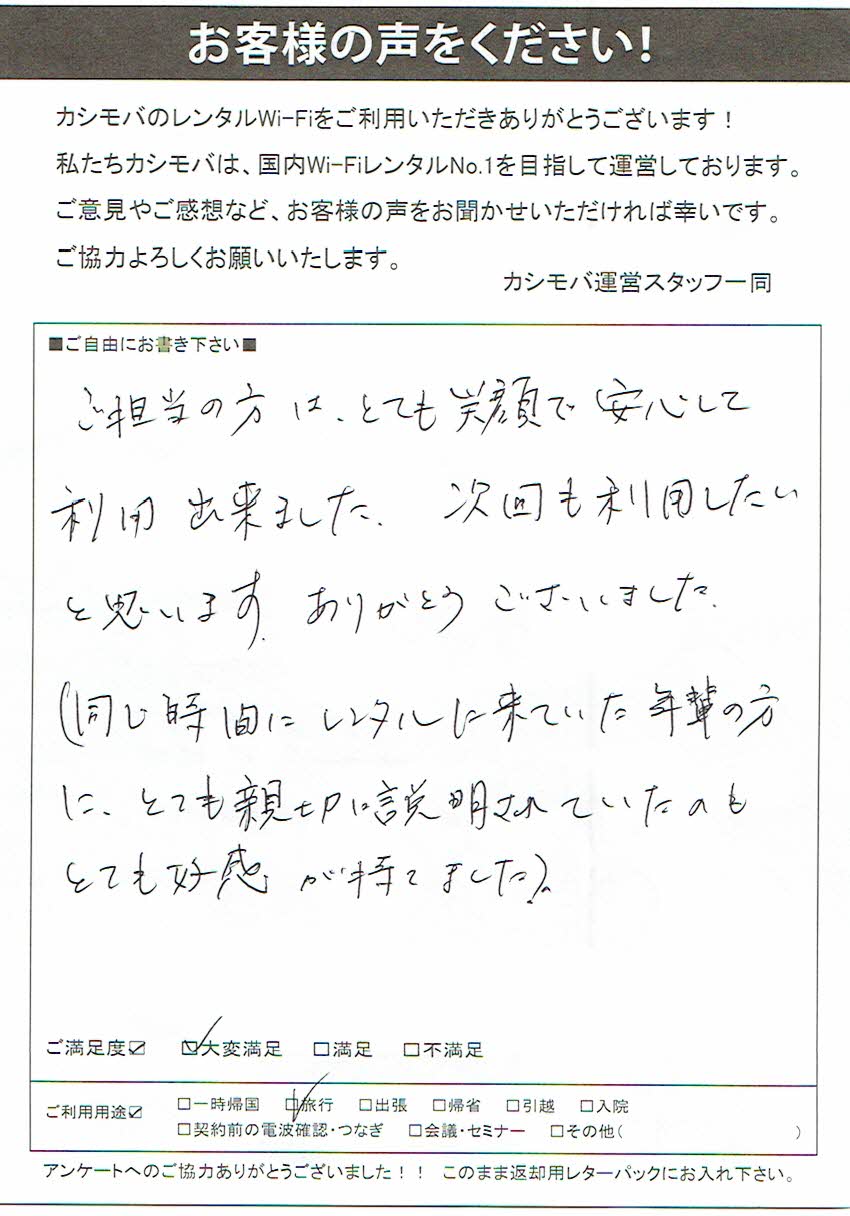 お客様の声をください！
カシモバのレンタルWi-Fiをご利用いただきありがとうございます！
私たちカシモバは、国内Wi-FiレンタルNo.1を目指して運営しております。
ご意見やご感想など、お客様の声をお聞かせいただければ幸いです。
ご協力よろしくお願いいたします。
カシモバ運営スタッフ一同
■ご自由にお書き下さい■
ご担当の方は、とても笑顔で安心して
利用出来ました。次回も利用したい
と思います。ありがとうございました。
(同じ時間にレンタルに来ていた年輩の方
に、とても親切に説明されていたのも
とても好感が持てました)。
ご満足度☑ ☑大変満足 □満足 □不満足
ご利用用途☑ □一時帰国 ☑旅行 □出張 □帰省 □引越 □入院
□契約前の電波確認・つなぎ □会議・セミナー □その他( )
アンケートへのご協力ありがとうございました！！ このまま返却用レターパックにお入れ下さい。